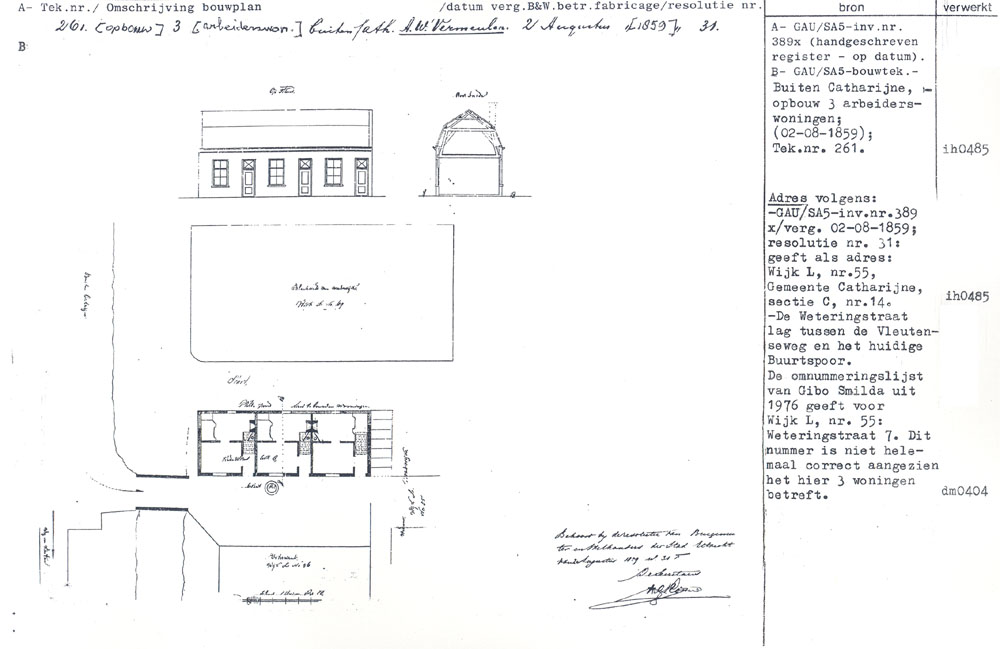 A- Tek.nr./ Omschrijving bouwplan /datum verg.B&W.betr.fabricage/resolutie nr. bron verwerkt
261. [opbouw] 3 [arbeiderswon.] buiten Cath. A.W. Vermeulen. 2 Augustus [1859] 31.
B
A- GAU/SA5-inv.nr.
389x (handgeschreven
register - op datum).
B- GAU/SA5-bouwtek.-
Buiten Catharijne, -
opbouw 3 arbeiders-
woningen;
(02-08-1859);
Tek.nr. 261.
ih0485
Adres volgens:
-GAU/SA5-inv.nr.389
x/verg. 02-08-1859;
resolutie nr. 31:
geeft als adres:
Wijk L, nr.55,
Gemeente Catharijne,
sectie C, nr.14.
ih0485
-De Weteringstraat
lag tussen de Vleuten-
seweg en het huidige
Buurtspoor.
De omnummeringslijst
van Gibo Smilda uit
1976 geeft voor
Wijk L, nr. 55:
Weteringstraat 7. Dit
nummer is niet hele-
maal correct aangezien
het hier 3 woningen
betreft.
dm0404
Wijk L No 69
Behoort bij de resolutie van Burgemees
ter en Wethouders der Stad Utrecht
van 2 Augustus 1859 No 31
De Secretaris